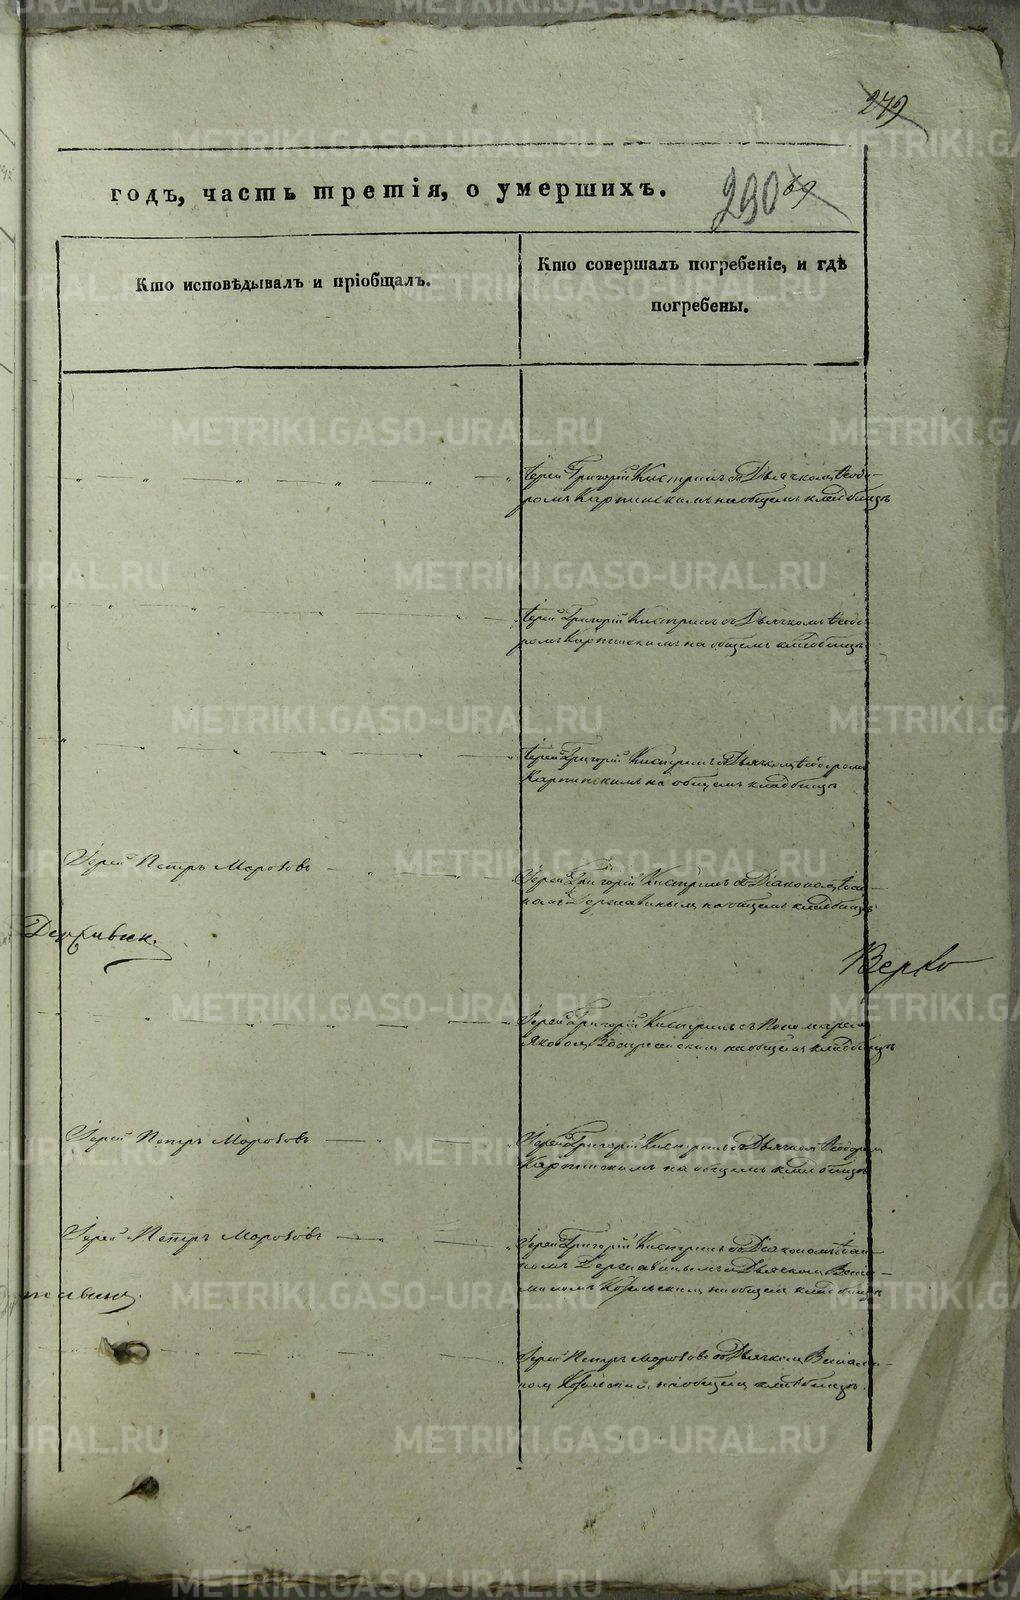 279
годъ, часть третія, о умершихъ.
290 69
Кто исповѣдывалъ и пріобщалъ.
Кто совершалъ погребеніе, и гдѣ
погребены.
Іерей Григорій Кистринъ съ Дьячкомъ Ѳеодо-
ромъ Карпинскимъ на общемъ кладбищѣ
Іерей Григорій Кистринъ съ Дьячкомъ Ѳеодо-
ромъ Карпинскимъ на общемъ кладбищѣ
Іерей Григорій Кистринъ съ Дьячкомъ Ѳеодоромъ
Карпинскимъ на общемъ кладбищѣ
Іерей Петръ Морозовъ
Іерей Григорій Кистринъ съ Діакономъ Іоан-
номъ Державинымъ на общемъ кладбищѣ
Іерей Григорій Кистринъ съ Пономаремъ
Яковомъ на общемъ кладбищѣ
Іерей Петръ Морозовъ
Іерей Григорій Кистринъ съ Дьячкомъ Ѳеодоромъ
Карпинскимъ на общемъ кладбищѣ
Іерей Петръ Морозовъ
Іерей Григорій Кистринъ съ Діакономъ Іоан-
номъ Державинымъ и Дьячкомъ Веніа-
миномъ на общемъ кладбищѣ
Іерей Петръ Морозовъ съ Дьячкомъ Веніами-
номъ на общемъ кладбищѣ.
METRIKI.GASO-URAL.RU